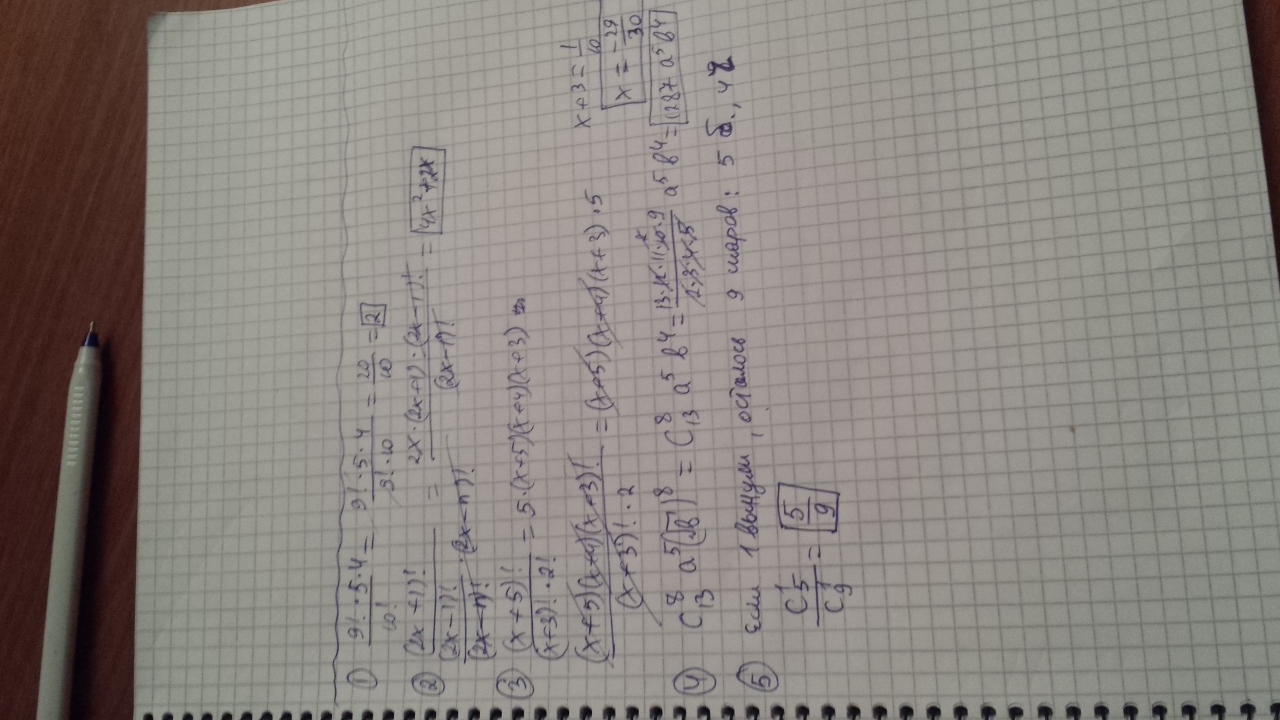 ① 9!·5·4 / 10! = 9!·5·4 / 9!·10 = 20/10 = 2
② (2x+1)! / (2x-1)! = 2x·(2x+1)·(2x-1)! / (2x-1)! = 4x²+2x
③ (x+5)! / (x+3)!·2! = 5·(x+5)(x+4)(x+3)
(x+5)(x+4)(x+3)! / (x+3)!·2 = (x+5)(x+4)(x+3)·5
x+3 = 1/10
x = -29/30
④ C₁₃⁸ a⁵(√b)⁸ = C₁₃⁸ a⁵ b⁴ = 13·12·11·10·9 / 2·3·4·5 a⁵ b⁴ = 1287 a⁵ b⁴
⑤ Если 1 вынули, осталось 9 шаров: 5 б., 4 ч
C₅¹ / C₉¹ = 5/9